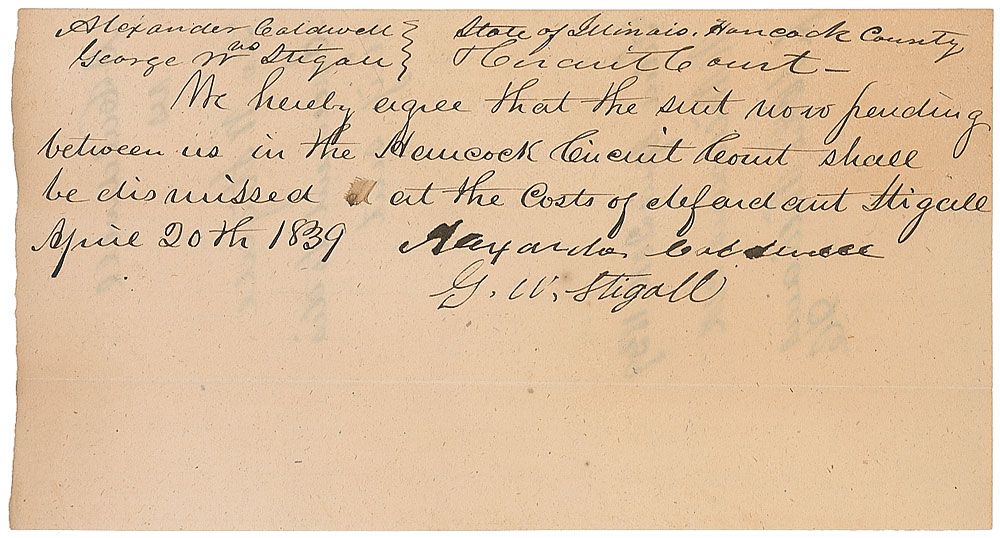 Alexander Caldwell } State of Illinois, Hancock County
vs
George W Stigall } Circuit Court —
We hereby agree that the suit now pending
between us in the Hancock Circuit Court shall
be dismissed at the Costs of defandant Stigall
April 20th 1839 Alexander Caldwell
G. W. Stigall